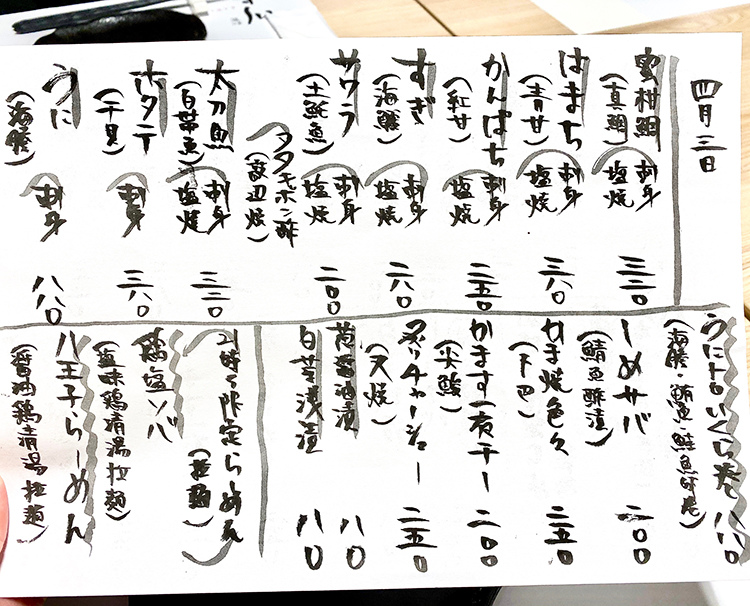 四月三日
蜜柑鯛 刺身 三二〇
(真鯛) 塩焼
はまち 刺身 三八〇
(青甘) 塩焼
かんぱち 刺身 二五〇
(紅甘) 塩焼
すぎ 刺身 二八〇
(海鱺) 塩焼
サワラ 刺身 二〇〇
(土魠魚) 塩焼
タタキポン酢
太刀魚 刺身 三二〇
(白帯魚) 塩焼
ホタテ 刺身 三八〇
(干貝)
うに 刺身 八八〇
(海膽)
うにトロいくら巻 八八〇
(海膽・鮪魚・鮭魚卵巻)
しめサバ 二〇〇
(鯖魚酢漬)
かま焼色々 二五〇
(下巴)
かます一夜干し 二〇〇
(尖鮻)
炙りチャーシュー 二五〇
(叉焼)
醤油漬 八〇
浅漬 八〇
21時〜限定らーめん
(拉麺)
鶏塩ソバ
(塩味鶏清湯拉麺)
八王子らーめん
(醤油鶏清湯拉麺)